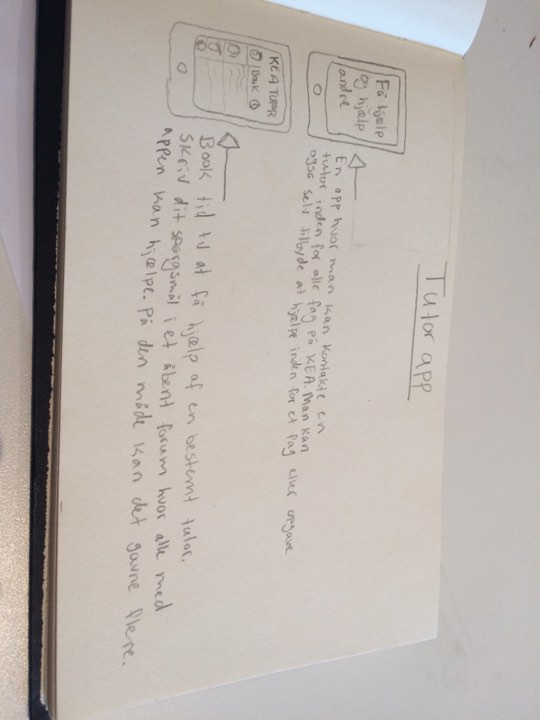 Tutor app
Få hjælp
og hjælp
andre
En app hvor man kan kontakte en
tutor inden for alle fag på KEA. Man kan
også selv tilbyde at hjælpe inden for et fag eller opgave
KEA TUTOR
Book
Book tid til at få hjælp af en bestemt tutor.
Skriv dit spørgsmål i et åbent forum hvor alle med
appen kan hjælpe. På den måde kan det gavne flere.